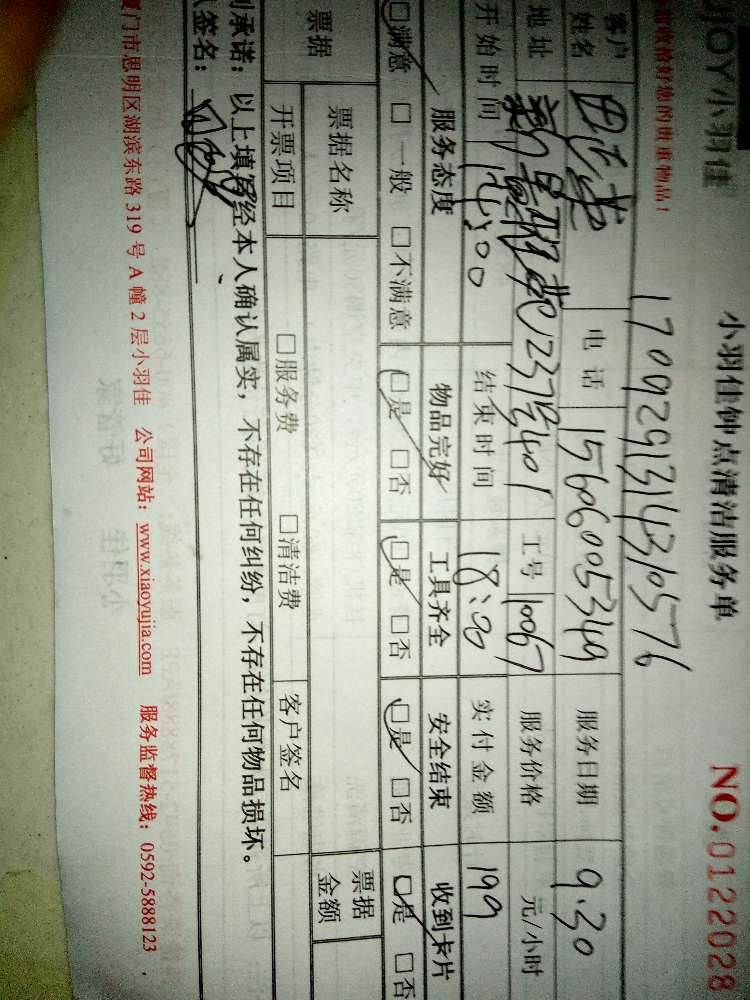 UJOY小羽佳
小羽佳钟点清洁服务单
NO.0122028
您的贵重物品！
1709291314310576
客户姓名
电话 15606005349 服务日期 9.30
地址 237号401 工号 10067 服务价格 元/小时
开始时间 14:00 结束时间 18:00 实付金额 199
服务态度 物品完好 工具齐全 安全结束 收到卡片
□满意 □一般 □不满意 □是 □否 □是 □否 □是 □否 □是 □否
票据 票据名称 票据金额
开票项目 □服务费 □清洁费 客户签名
承诺：以上填写经本人确认属实，不存在任何纠纷，不存在任何物品损坏。
签名：
厦门市思明区湖滨东路 319 号 A 幢 2 层小羽佳 公司网站：www.xiaoyujia.com 服务监督热线：0592-5888123